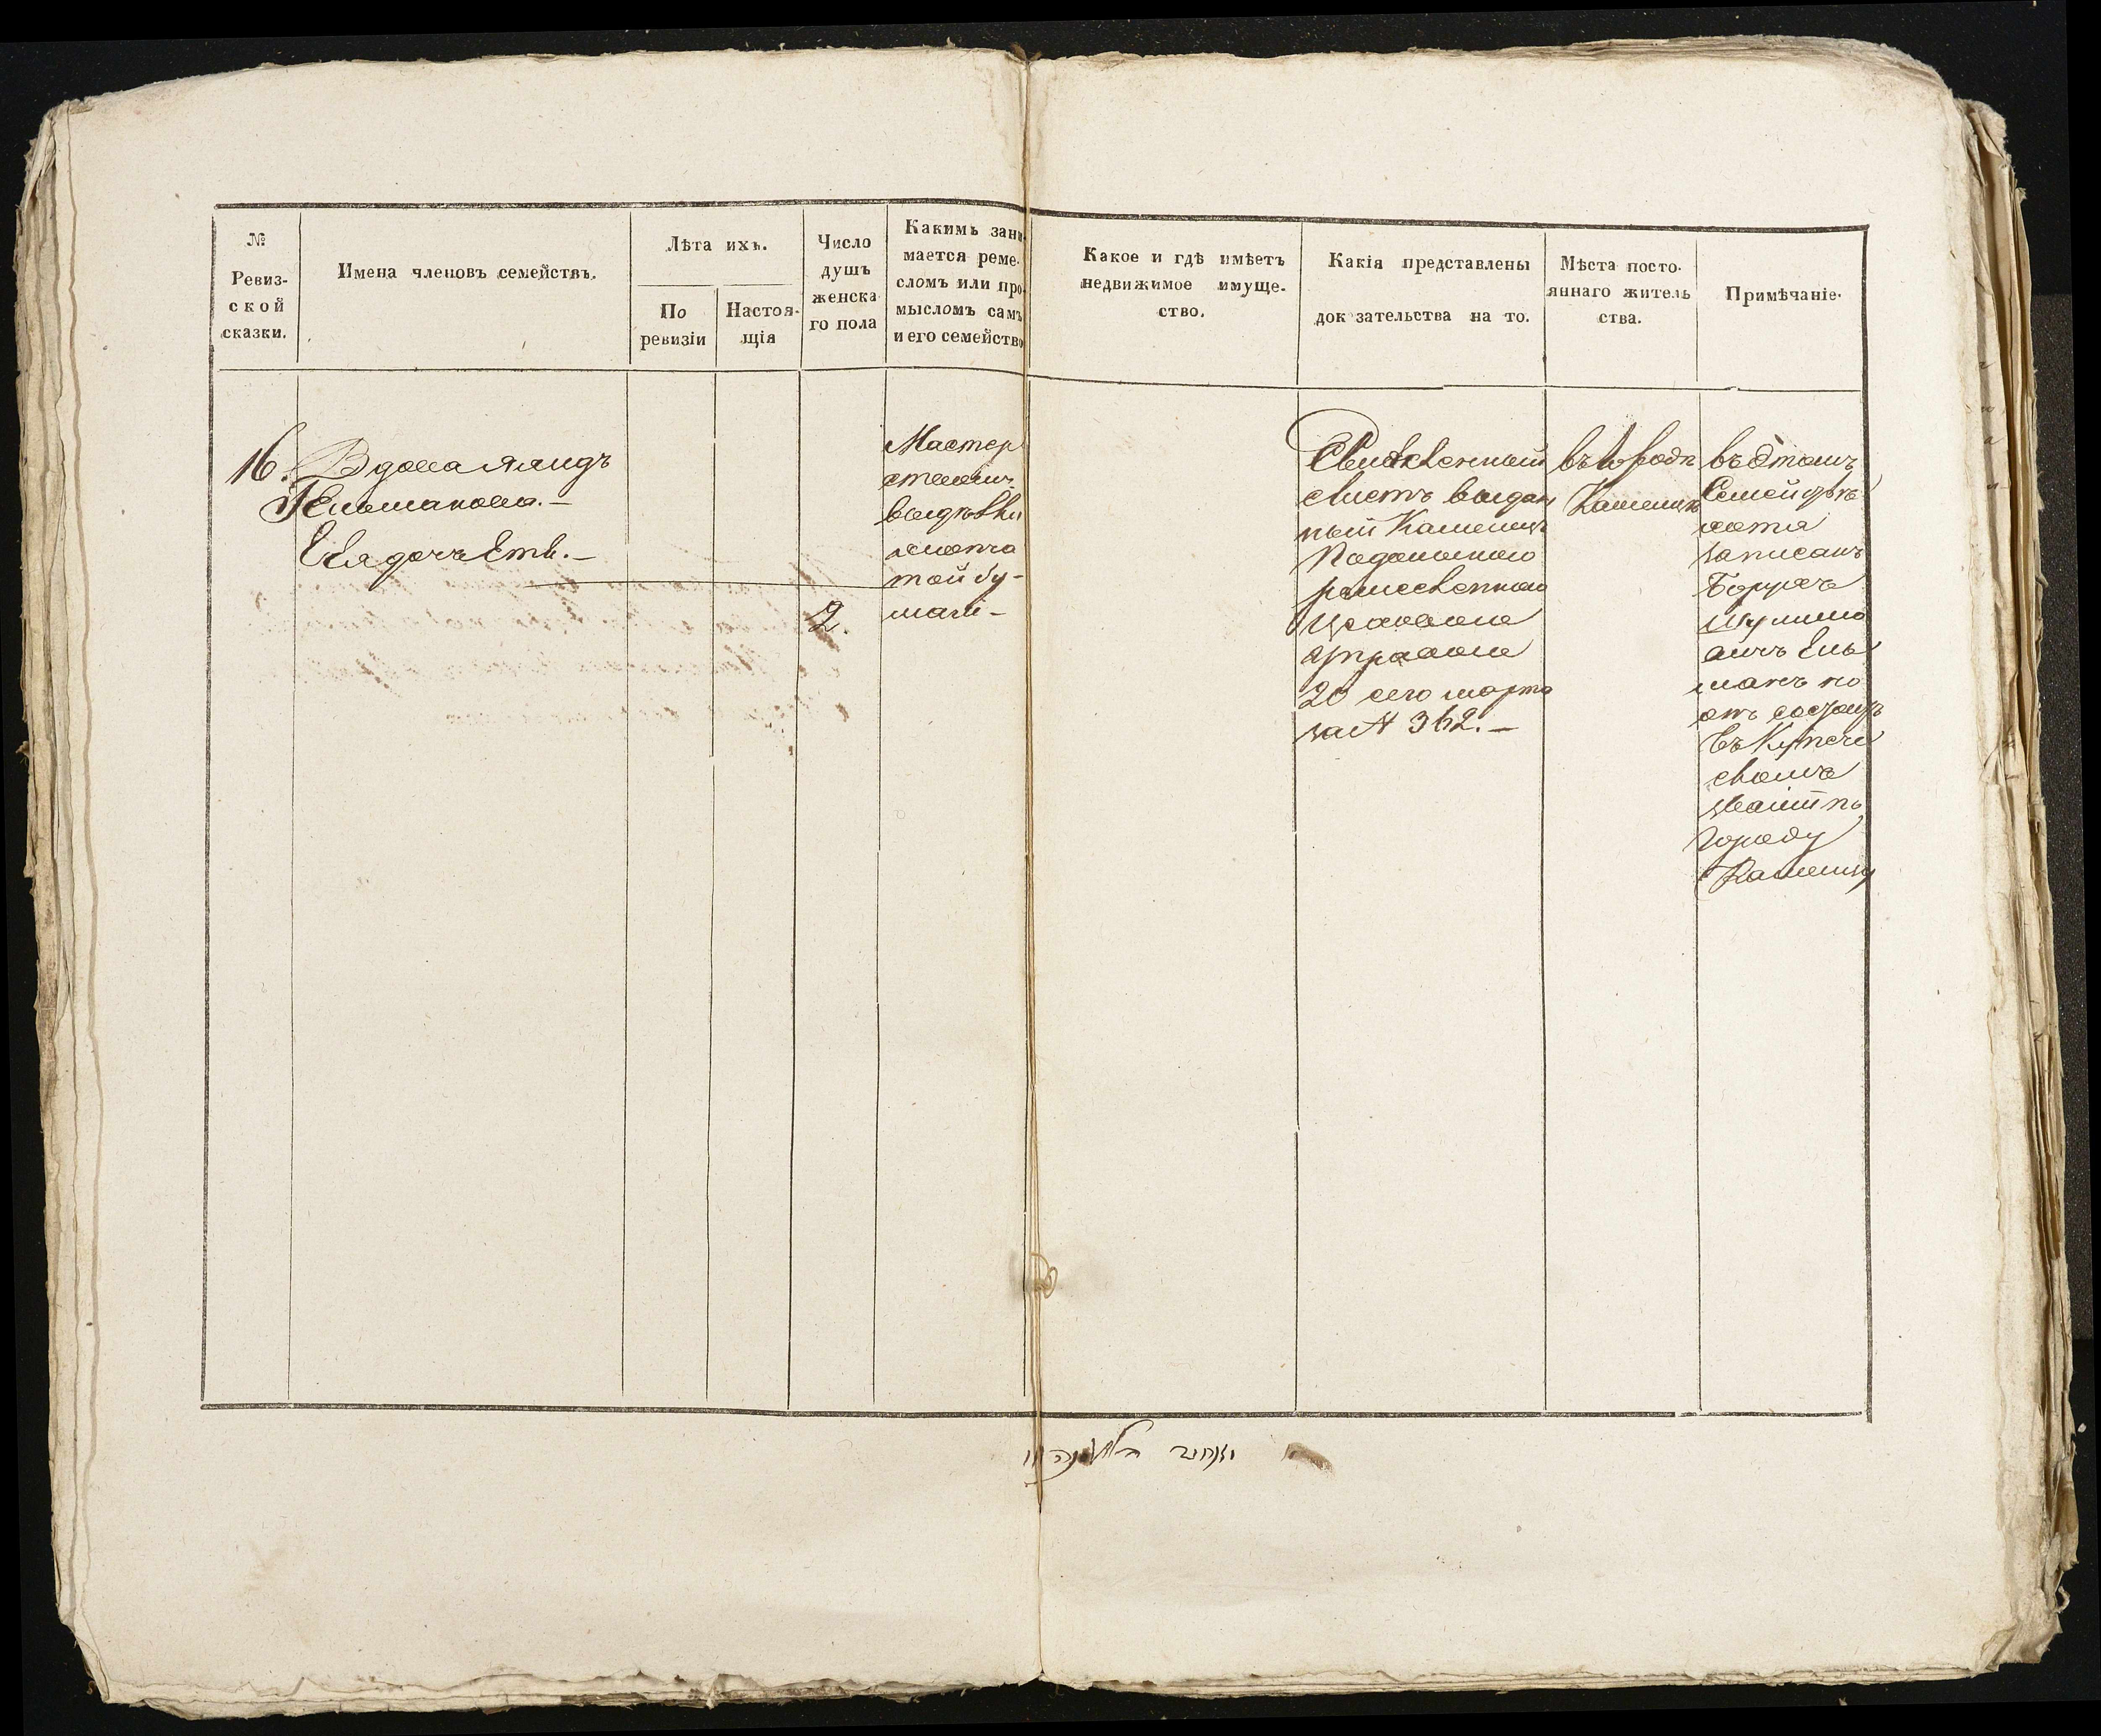 №
Ревиз-
ской
сказки.
Имена членовъ семействъ.
Лѣта ихъ.
По
ревизіи
Настоя-
щія
Число
душъ
женска
го пола
Какимъ зани-
мается реме-
сломъ или про-
мысломъ самъ
и его семейство
Какое и гдѣ имѣетъ
недвижимое имуще-
ство.
Какія представлены
док зательства на то.
Мѣста посто-
яннаго житель
ства.
Примѣчаніе.
16.
Вдова
Гельманова.-
Ея дочь
2.
Мастер
ствомъ
выдѣлки
той бу-
маги-
листъ выдан
ный Каменецъ
Подольскою
ремесленною
управою
20 сего марта
за № 362.-
въ городѣ
Каменцѣ
въ этомъ
Семействѣ
хотя
записанъ
Борухъ
Шулимо
вичъ Гель
манъ но
онъ состоитъ
въ Купече
скомъ
званіи по
городу
Каменцу